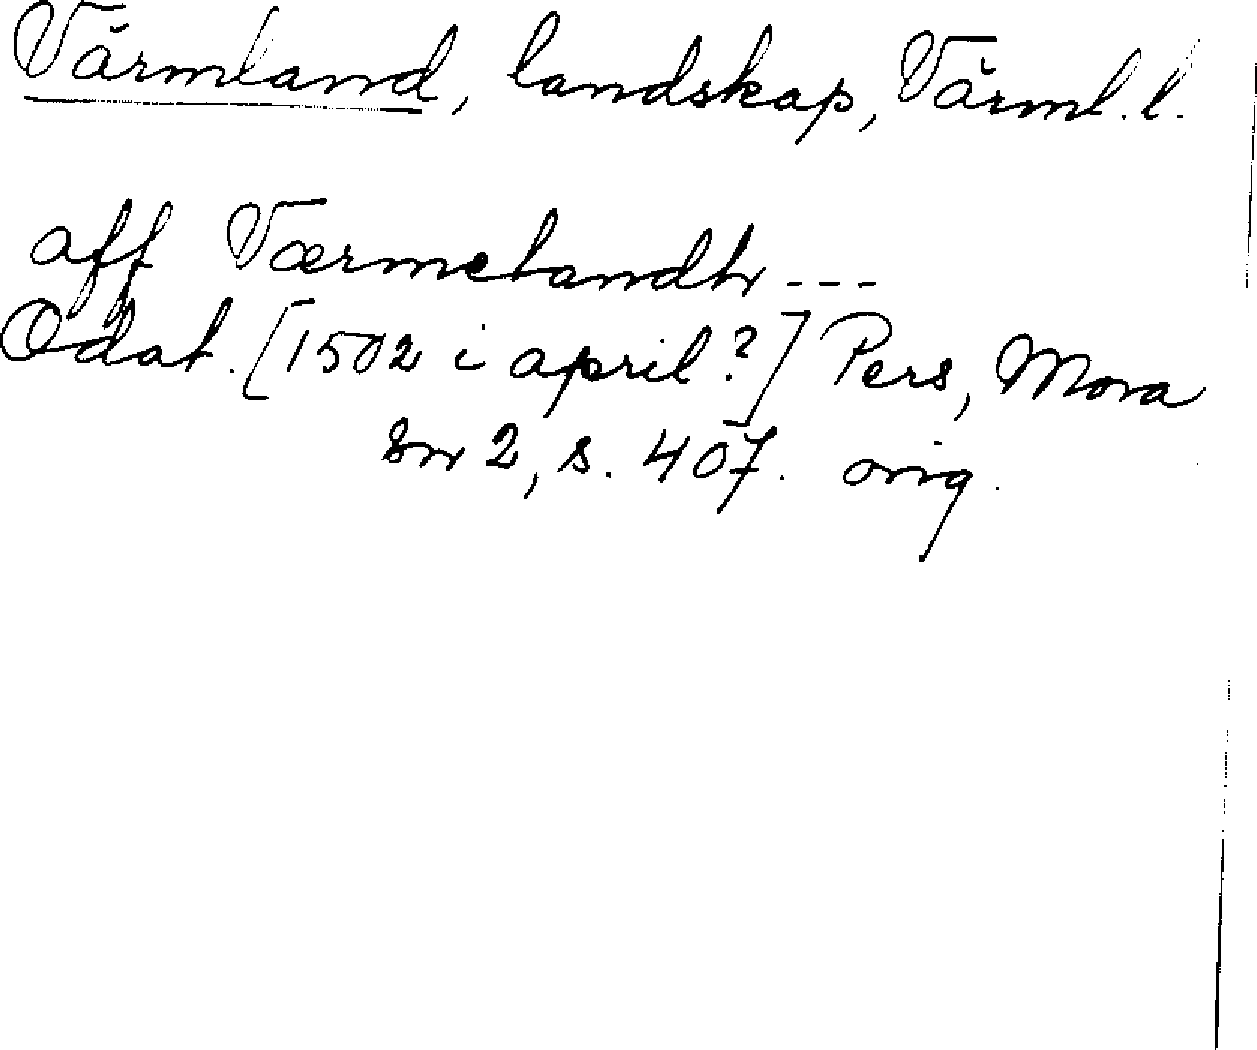 Värmland, landskap, Värml. l.
aff Værmelandh ---
Odat. [1502 i april?] Pers, Mora
sn 2, s. 407. orig.